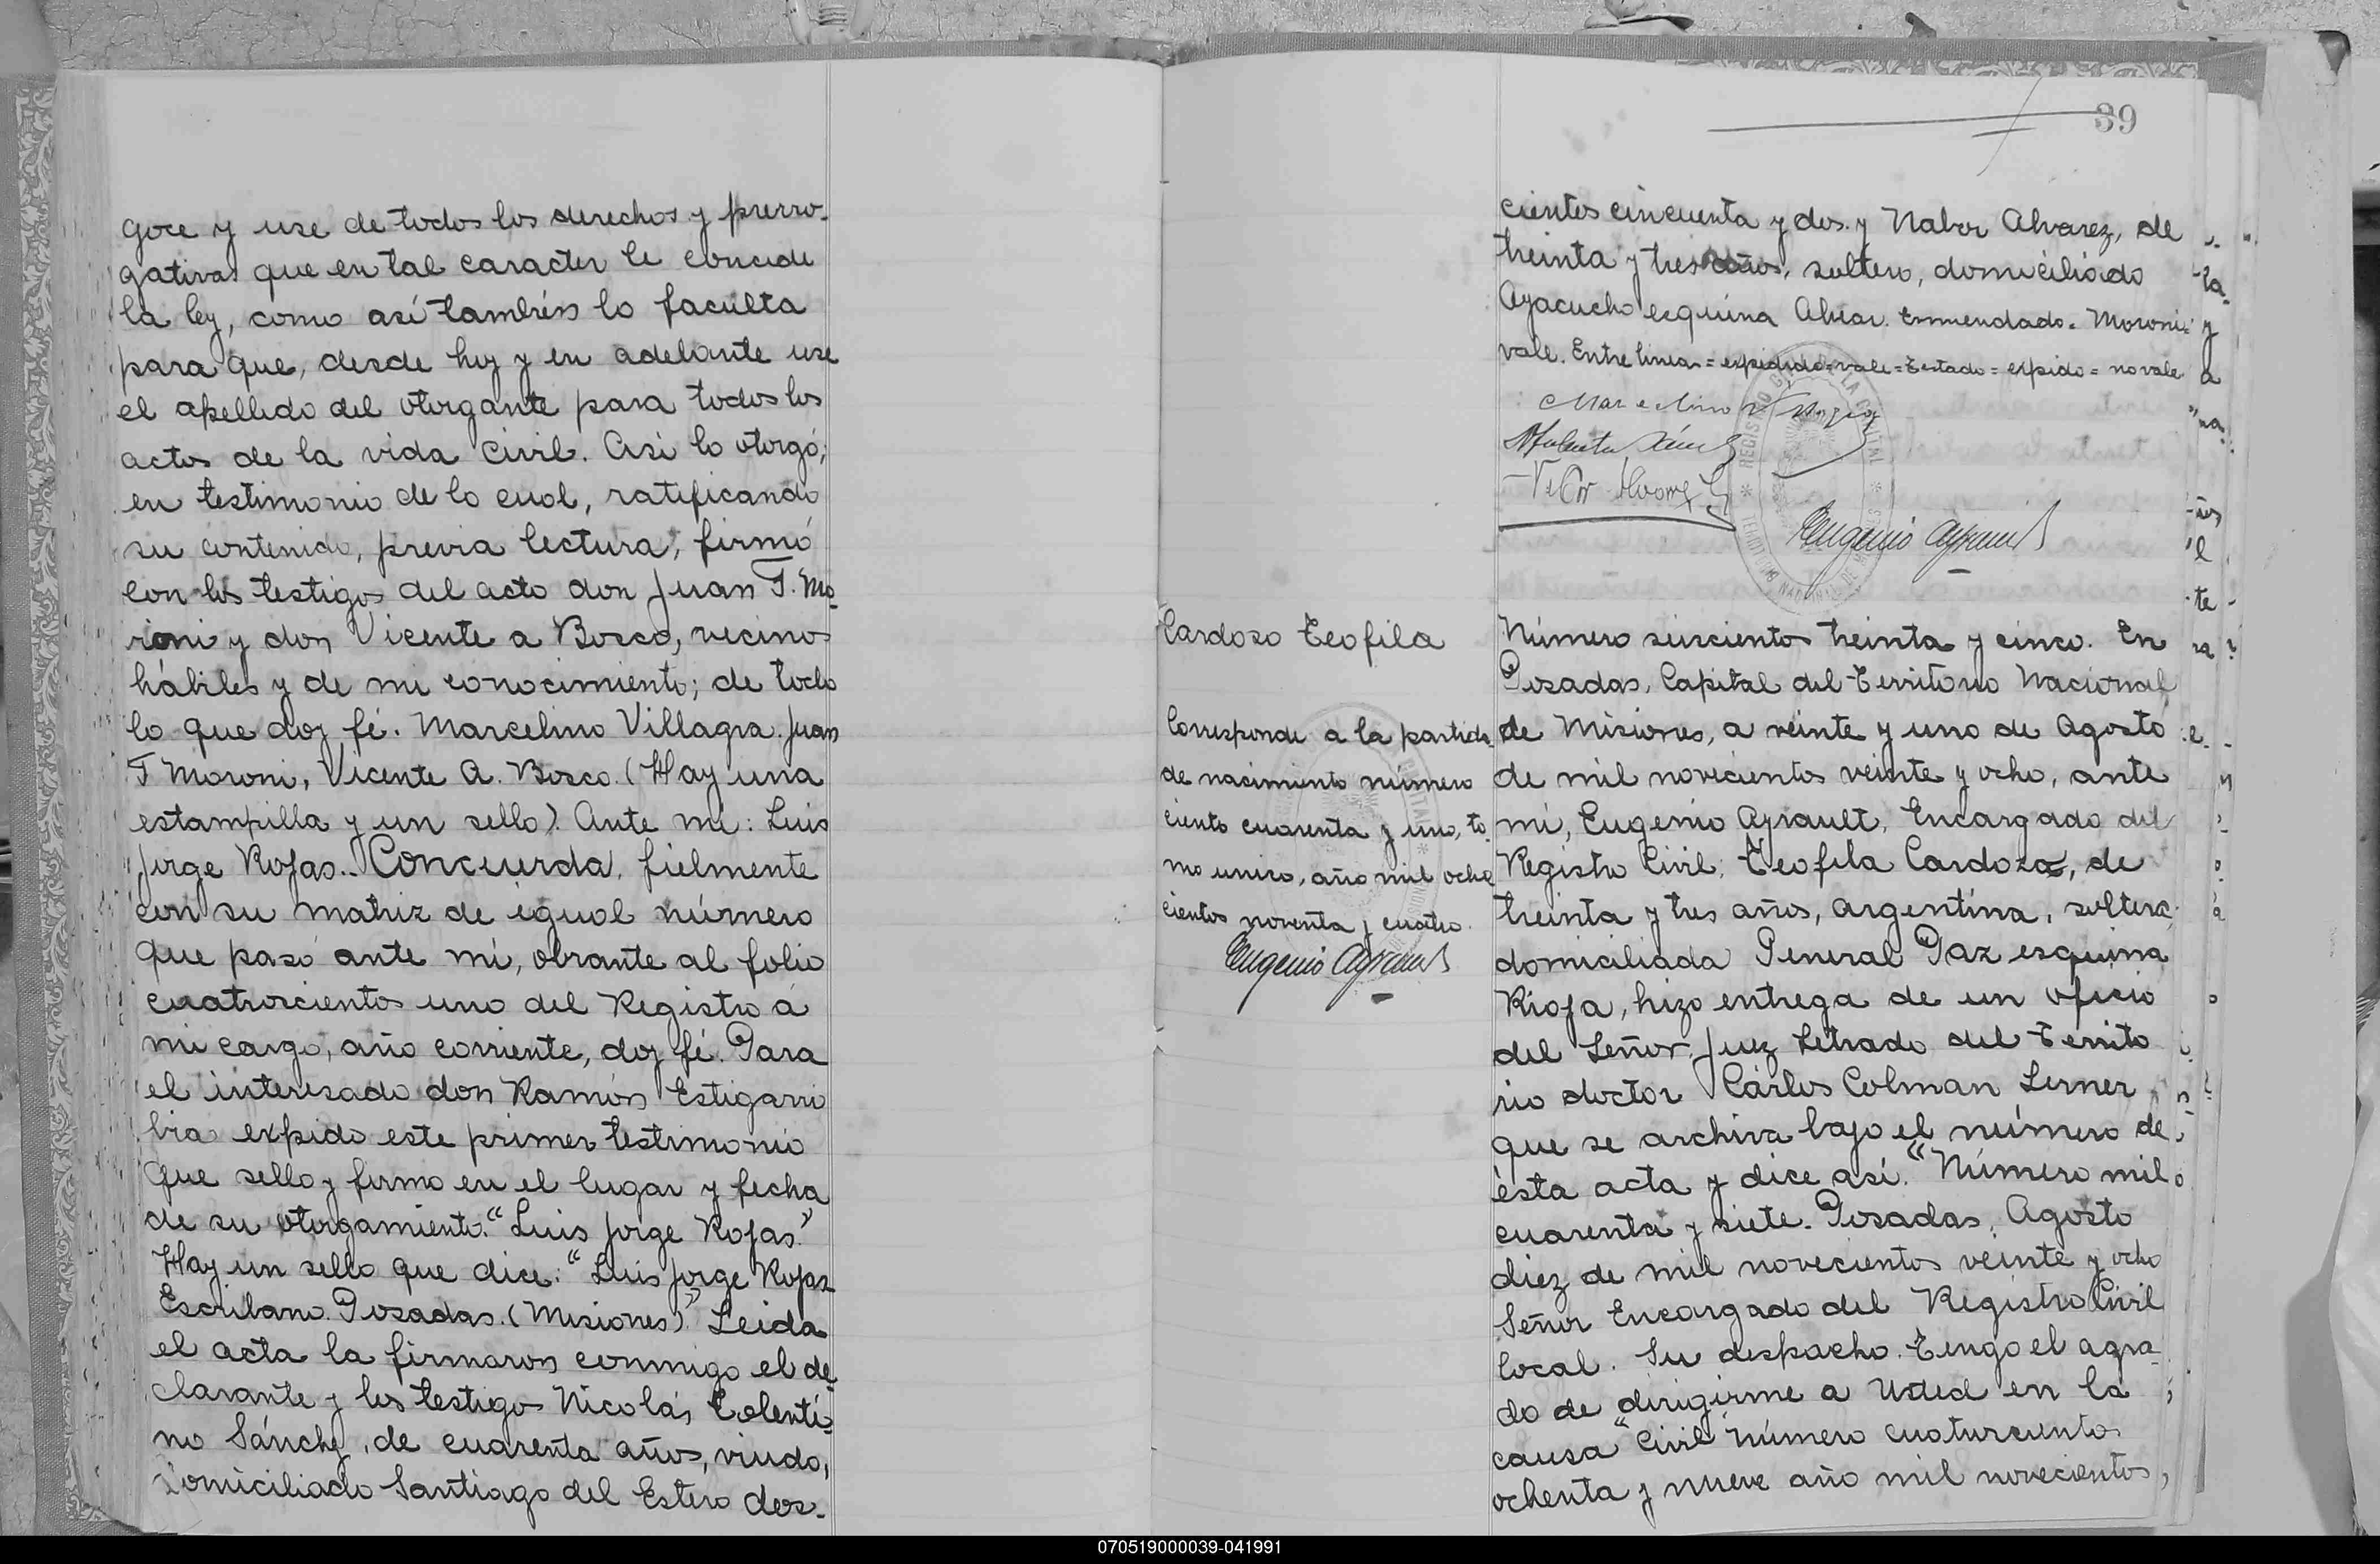 goce y use de todos los derechos y prerro-
gativas que en tal caracter le concede
la ley, como así también lo faculta
para que, desde hoy y en adelante use
el apellido del otorgante para todos los
actos de la vida civil. Asi lo otorgó;
en testimonio de lo cual, ratificando
su contenido, previa lectura, firmó
con los testigos del acto don Juan T. Mo-
roni y don Vicente a Bosco, vecinos
hábiles y de mi conocimiento; de todo
lo que doy fé. Marcelino Villagra. Juan
T Moroni, Vicente A. Bosco. (Hay una
estampilla y un sello). Ante mí: Luis
Jorge Rojas.. Concuerda, fielmente
con su matriz de igual número
que pasó ante mí, obrante al folio
cuatrocientos uno del Registro á
mi cargo, año corriente, doy fé. Para
el interesado don Ramón Estigarri
bia expido este primer testimonio
que sello y firmo en el lugar y fecha
de su otorgamiento. "Luis Jorge Rojas."
Hay un sello que dice: "Luis Jorge Rojas
Escribano. Posadas. (Misiones)" Leida
el acta la firmaron conmigo el de-
clarante y los testigos Nicolás Tolenti-
no Sánchez, de cuarenta años, viudo,
domiciliado Santiago del Estero dos-
39
cientos cincuenta y dos. y Nabor Alvarez, de
treinta y tres años, soltero, domiciliado
Ayacucho esquina Alvear. Enmendado = Moroni
vale. Entre lineas = expedido = vale = Testado = expido = no vale
Eugenio Ayrault
Cardoso Teofila
Corresponde a la partida
de nacimiento número
ciento cuarenta y uno, to
mo unico, año mil ocho
cientos noventa y cuatro.
Eugenio Ayrault
Número seiscientos treinta y cinco. En
Posadas, Capital del Territorio Nacional
de Misiones, a veinte y uno de Agosto
de mil novecientos veinte y ocho, ante
mí, Eugenio Ayrault, Encargado del
Registro Civil; Teofila Cardozo, de
treinta y tres años, argentina, soltera,
domiciliada General Paz esquina
Rioja, hizo entrega de un oficio
del Señor Juez Letrado del Territo
rio doctor Cárlos Colman Lerner
que se archiva bajo el número de
ésta acta y dice así. "Número mil
cuarenta y siete. Posadas, Agosto
diez de mil novecientos veinte y ocho
Señor Encargado del Registro Civil
local. Su despacho. Tengo el agra-
do de dirigirme a Usted en la
causa "Civil Número cuatrocientos
ochenta y nueve año mil novecientos
070519000039-041991